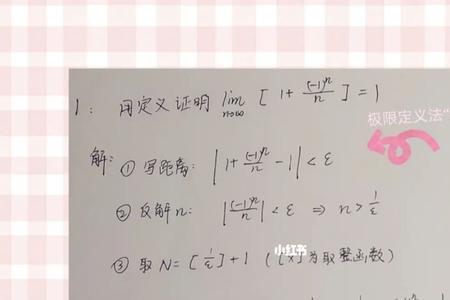 1: 用定义证明 lim n→∞ [1+ (-1)^n/n ] = 1
极限定义法"
解: ① 写距离: |1+ (-1)^n/n -1| < ε
② 反解n: |(-1)^n/n| < ε ⇒ n> 1/ε
小红书
③ 取 N = [1/ε]+1 ([x]为取整函数)